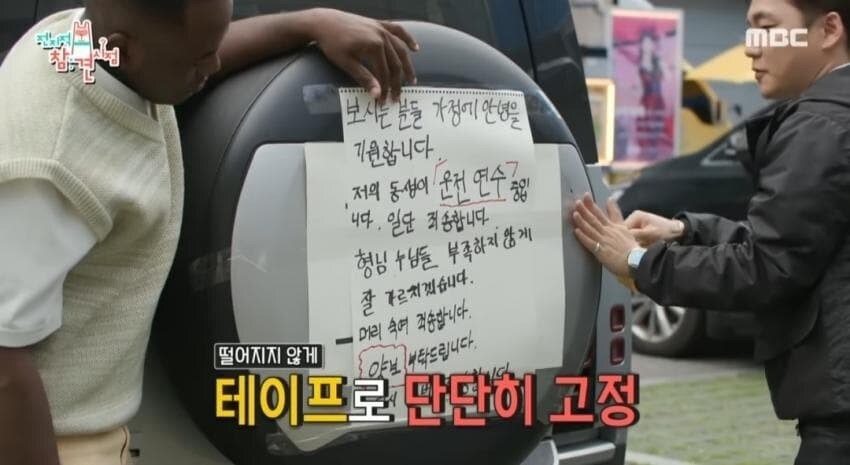 전지적
참견
시점
MBC
보시는 분들 가정에 안녕을
기원합니다
저의 동생이 「운전 연수」 중입
니다. 일단 죄송합니다.
형님 누님들 부족하지 않게
잘 가르치겠습니다.
머리 숙여 죄송합니다.
양보 부탁드립니다.
떨어지지 않게
테이프로 단단히 고정